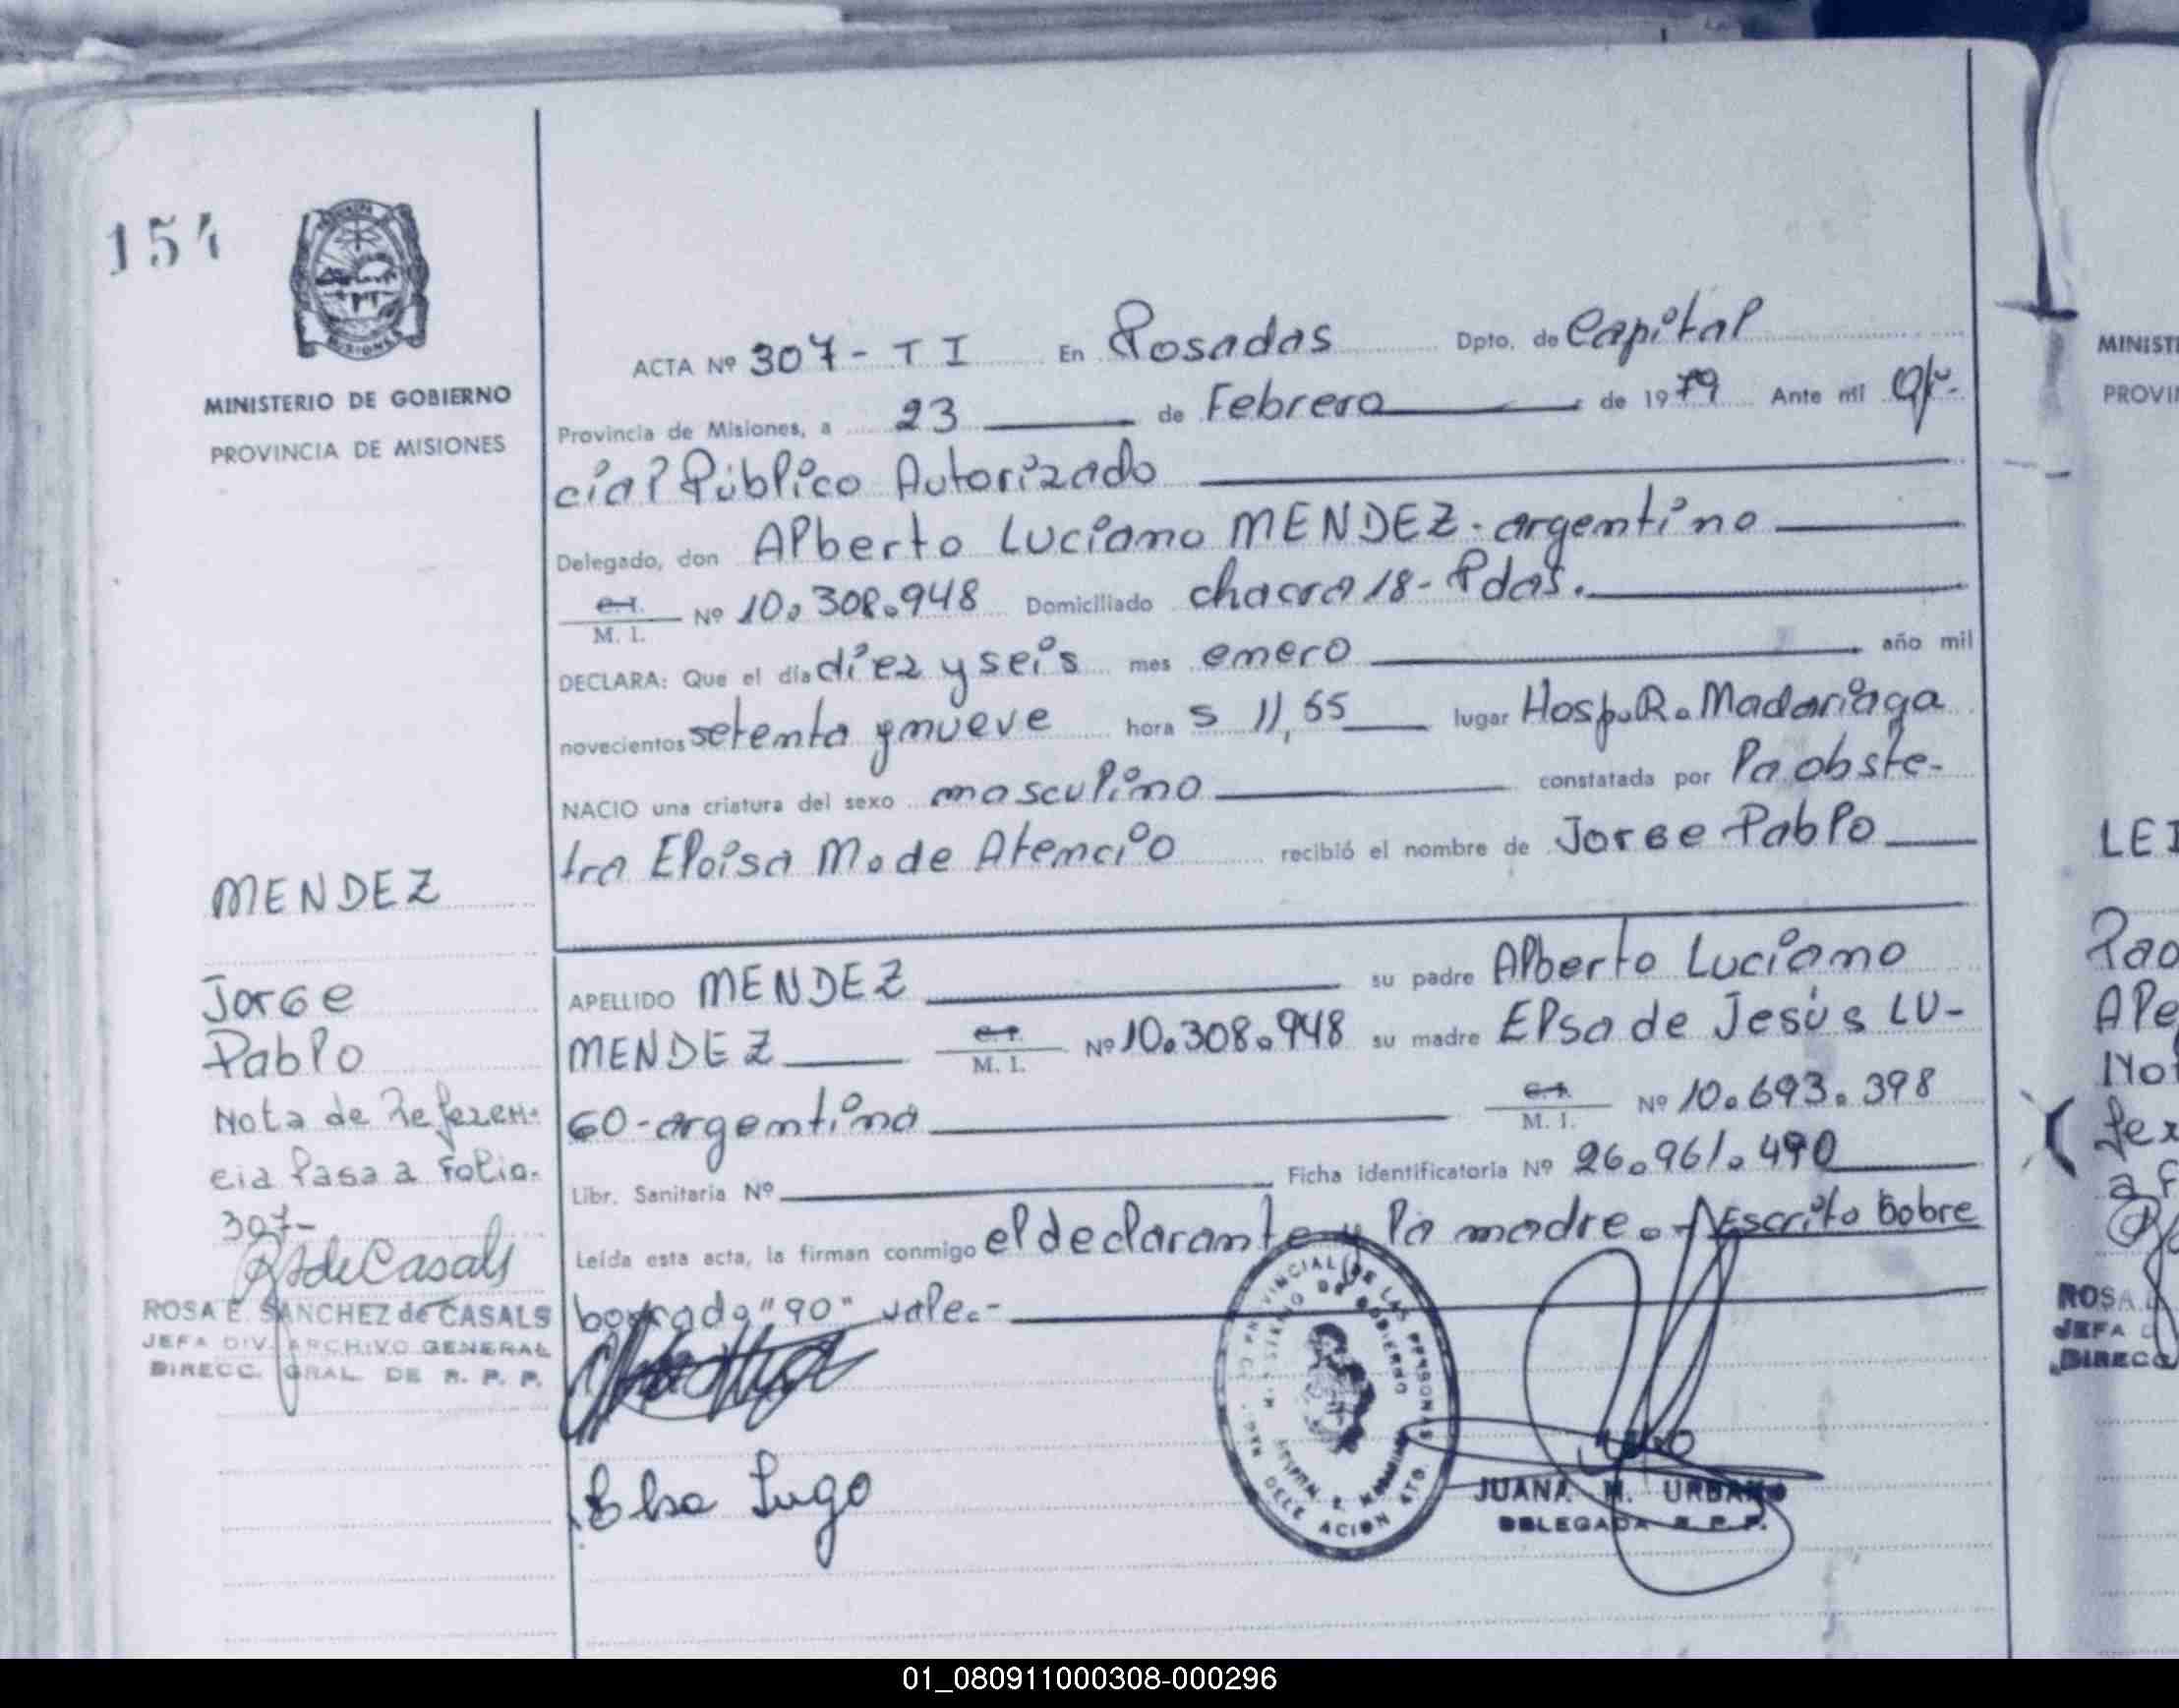 154
MISIONES
MINISTERIO DE GOBIERNO
PROVINCIA DE MISIONES
ACTA Nº 307 - T I En Posadas Dpto. de Capital
Provincia de Misiones, a 23 de Febrero de 1979 Ante mí Ofi-
cial Público Autorizado
Delegado, don Alberto Luciano MENDEZ - argentino
C.I. M. I. Nº 10.308.948 Domiciliado chacra 18 - Pdas.
DECLARA: Que el día diez y seis mes enero año mil
novecientos setenta y nueve hora s 11,55 lugar Hosp. R. Madariaga
NACIO una criatura del sexo masculino constatada por la obste-
tra Eloisa M. de Atencio recibió el nombre de Jorge Pablo
MENDEZ
Jorge
Pablo
Nota de Referen-
cia Pasa a Folio.
307-
RSdeCasals
ROSA E. SANCHEZ de CASALS
JEFA DIV. ARCHIVO GENERAL
DIRECC. GRAL. DE R. P. P.
APELLIDO MENDEZ su padre Alberto Luciano
MENDEZ C.I. M. I. Nº 10.308.948 su madre Elsa de Jesús LU-
GO - argentina C.I. M. I. Nº 10.693.398
Libr. Sanitaria Nº Ficha identificatoria Nº 26.961.490
Leída esta acta, la firman conmigo el declarante y la madre. - Escrito sobre
borrado "90" vale.-
Elsa Lugo
PROVINCIAL DE LAS PERSONAS
DE GOBIERNO
DELEGACION
JUANA M. URBANO
DELEGADA R. P. P.
MINISTE
PROVIN
LEI
Pao
Ale
Not
fer
a F
ROSA
JEFA D
DIRECC
01_080911000308-000296